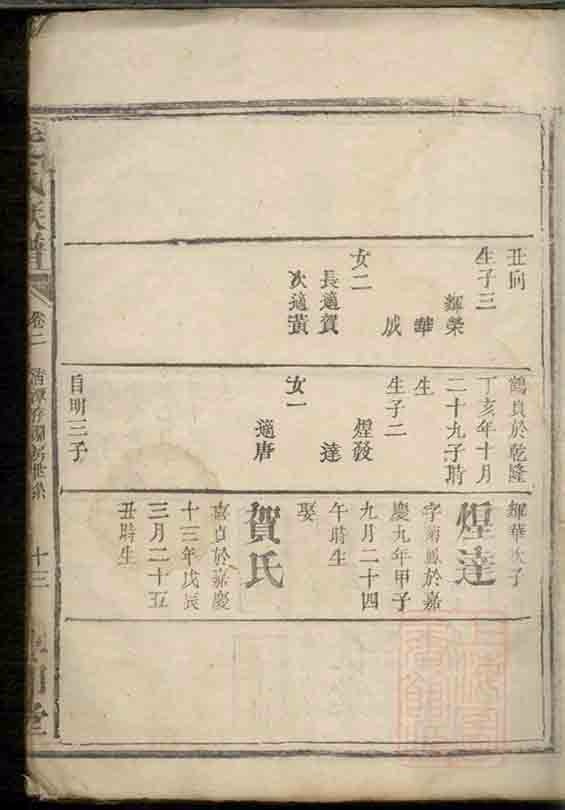 丑向
生子三
輝榮
華
成
女二
長適賀
次適黃
鶴貞於乾隆
丁亥年十月
二十九子時
生
生子二
煋發
達
女一
適唐
自明三子
輝華次子
煋達
字菊鳳於嘉
慶九年甲子
九月二十四
午時生
娶
賀氏
喜貞於嘉慶
十三年戊辰
三月二十五
丑時生
氏族譜
卷二
房世系
十三
堂